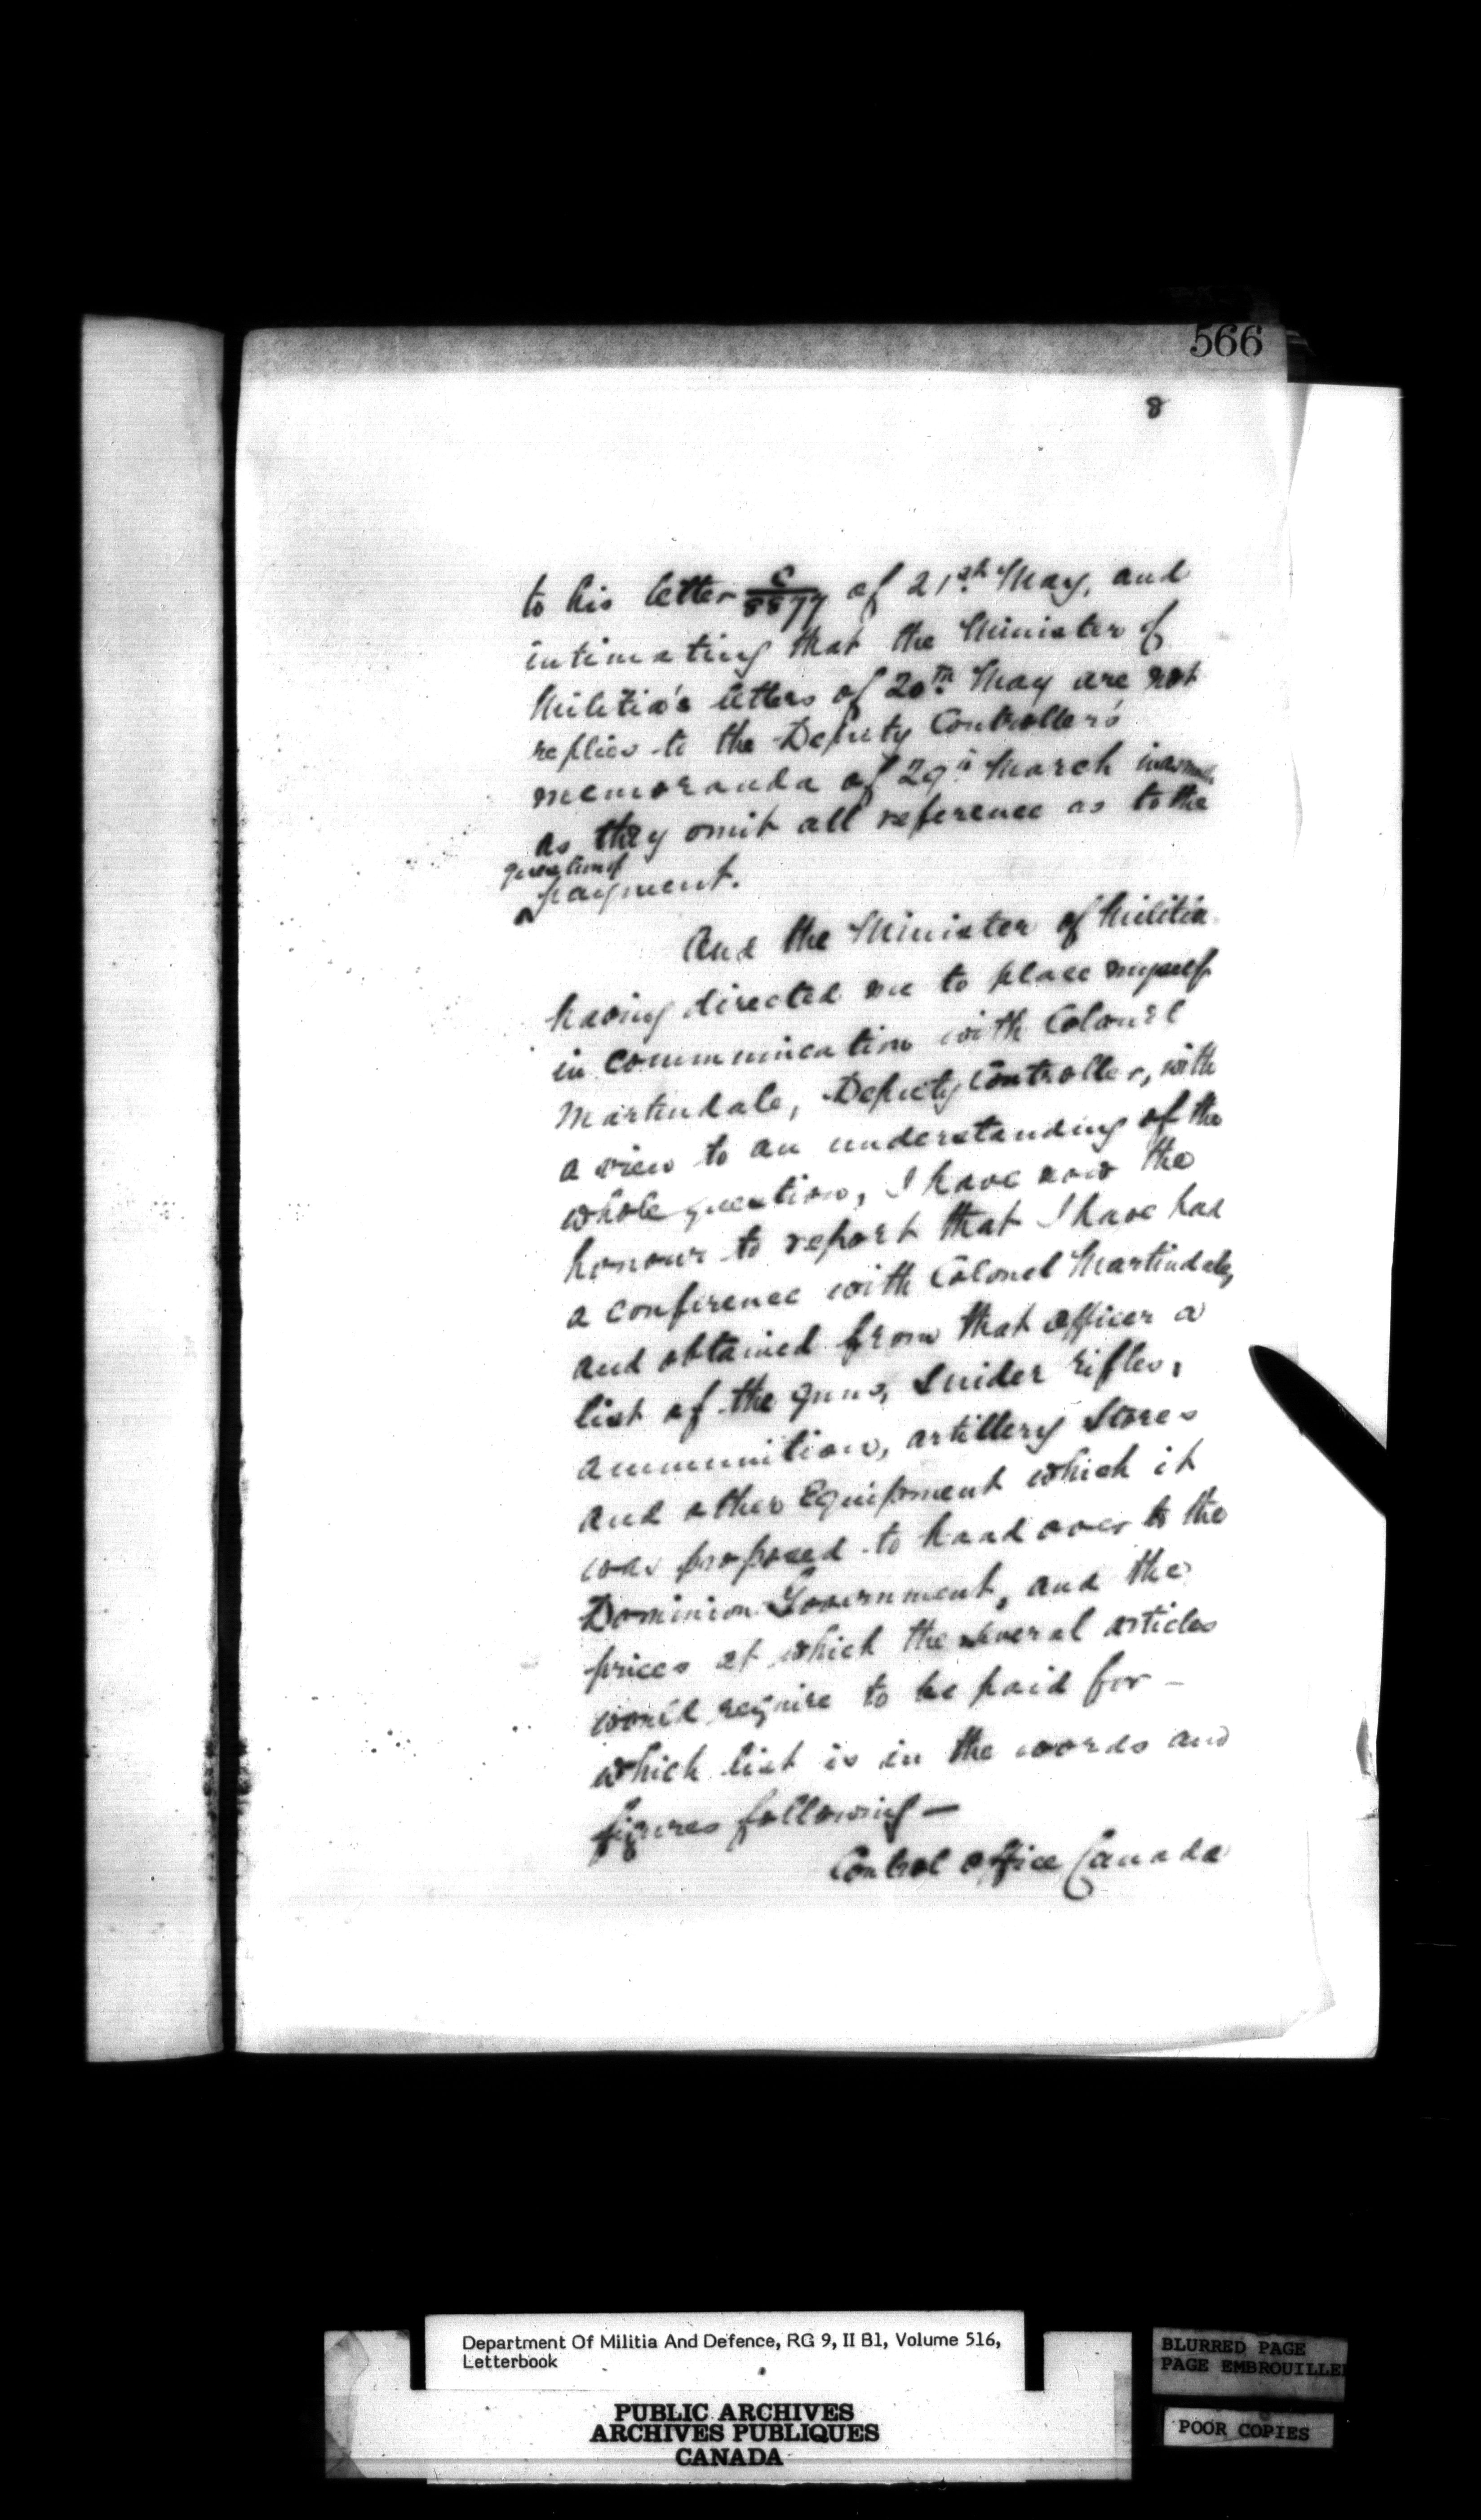 566
8
to his letter C/8877 of 21st May, and
intimating that the Minister of
Militia's letters of 20th May are not
replies to the Deputy Controller's
memoranda of 29th March inasmuch
as they omit all reference as to the
question of
payment.
And the Minister of Militia
having directed me to place myself
in communication with Colonel
Martindale, Deputy Controller, with
a view to an understanding of the
whole question, I have now the
honour to report that I have had
a conference with Colonel Martindale,
and obtained from that officer a
list of the guns, Snider rifles,
ammunition, artillery Stores
and other Equipment which it
was proposed to hand over to the
Dominion Government, and the
prices at which the several articles
would require to be paid for -
which list is in the words and
figures following —
Control Office Canada
Department Of Militia And Defence, RG 9, II B1, Volume 516,
Letterbook
PUBLIC ARCHIVES
ARCHIVES PUBLIQUES
CANADA
BLURRED PAGE
PAGE EMBROUILLEE
POOR COPIES